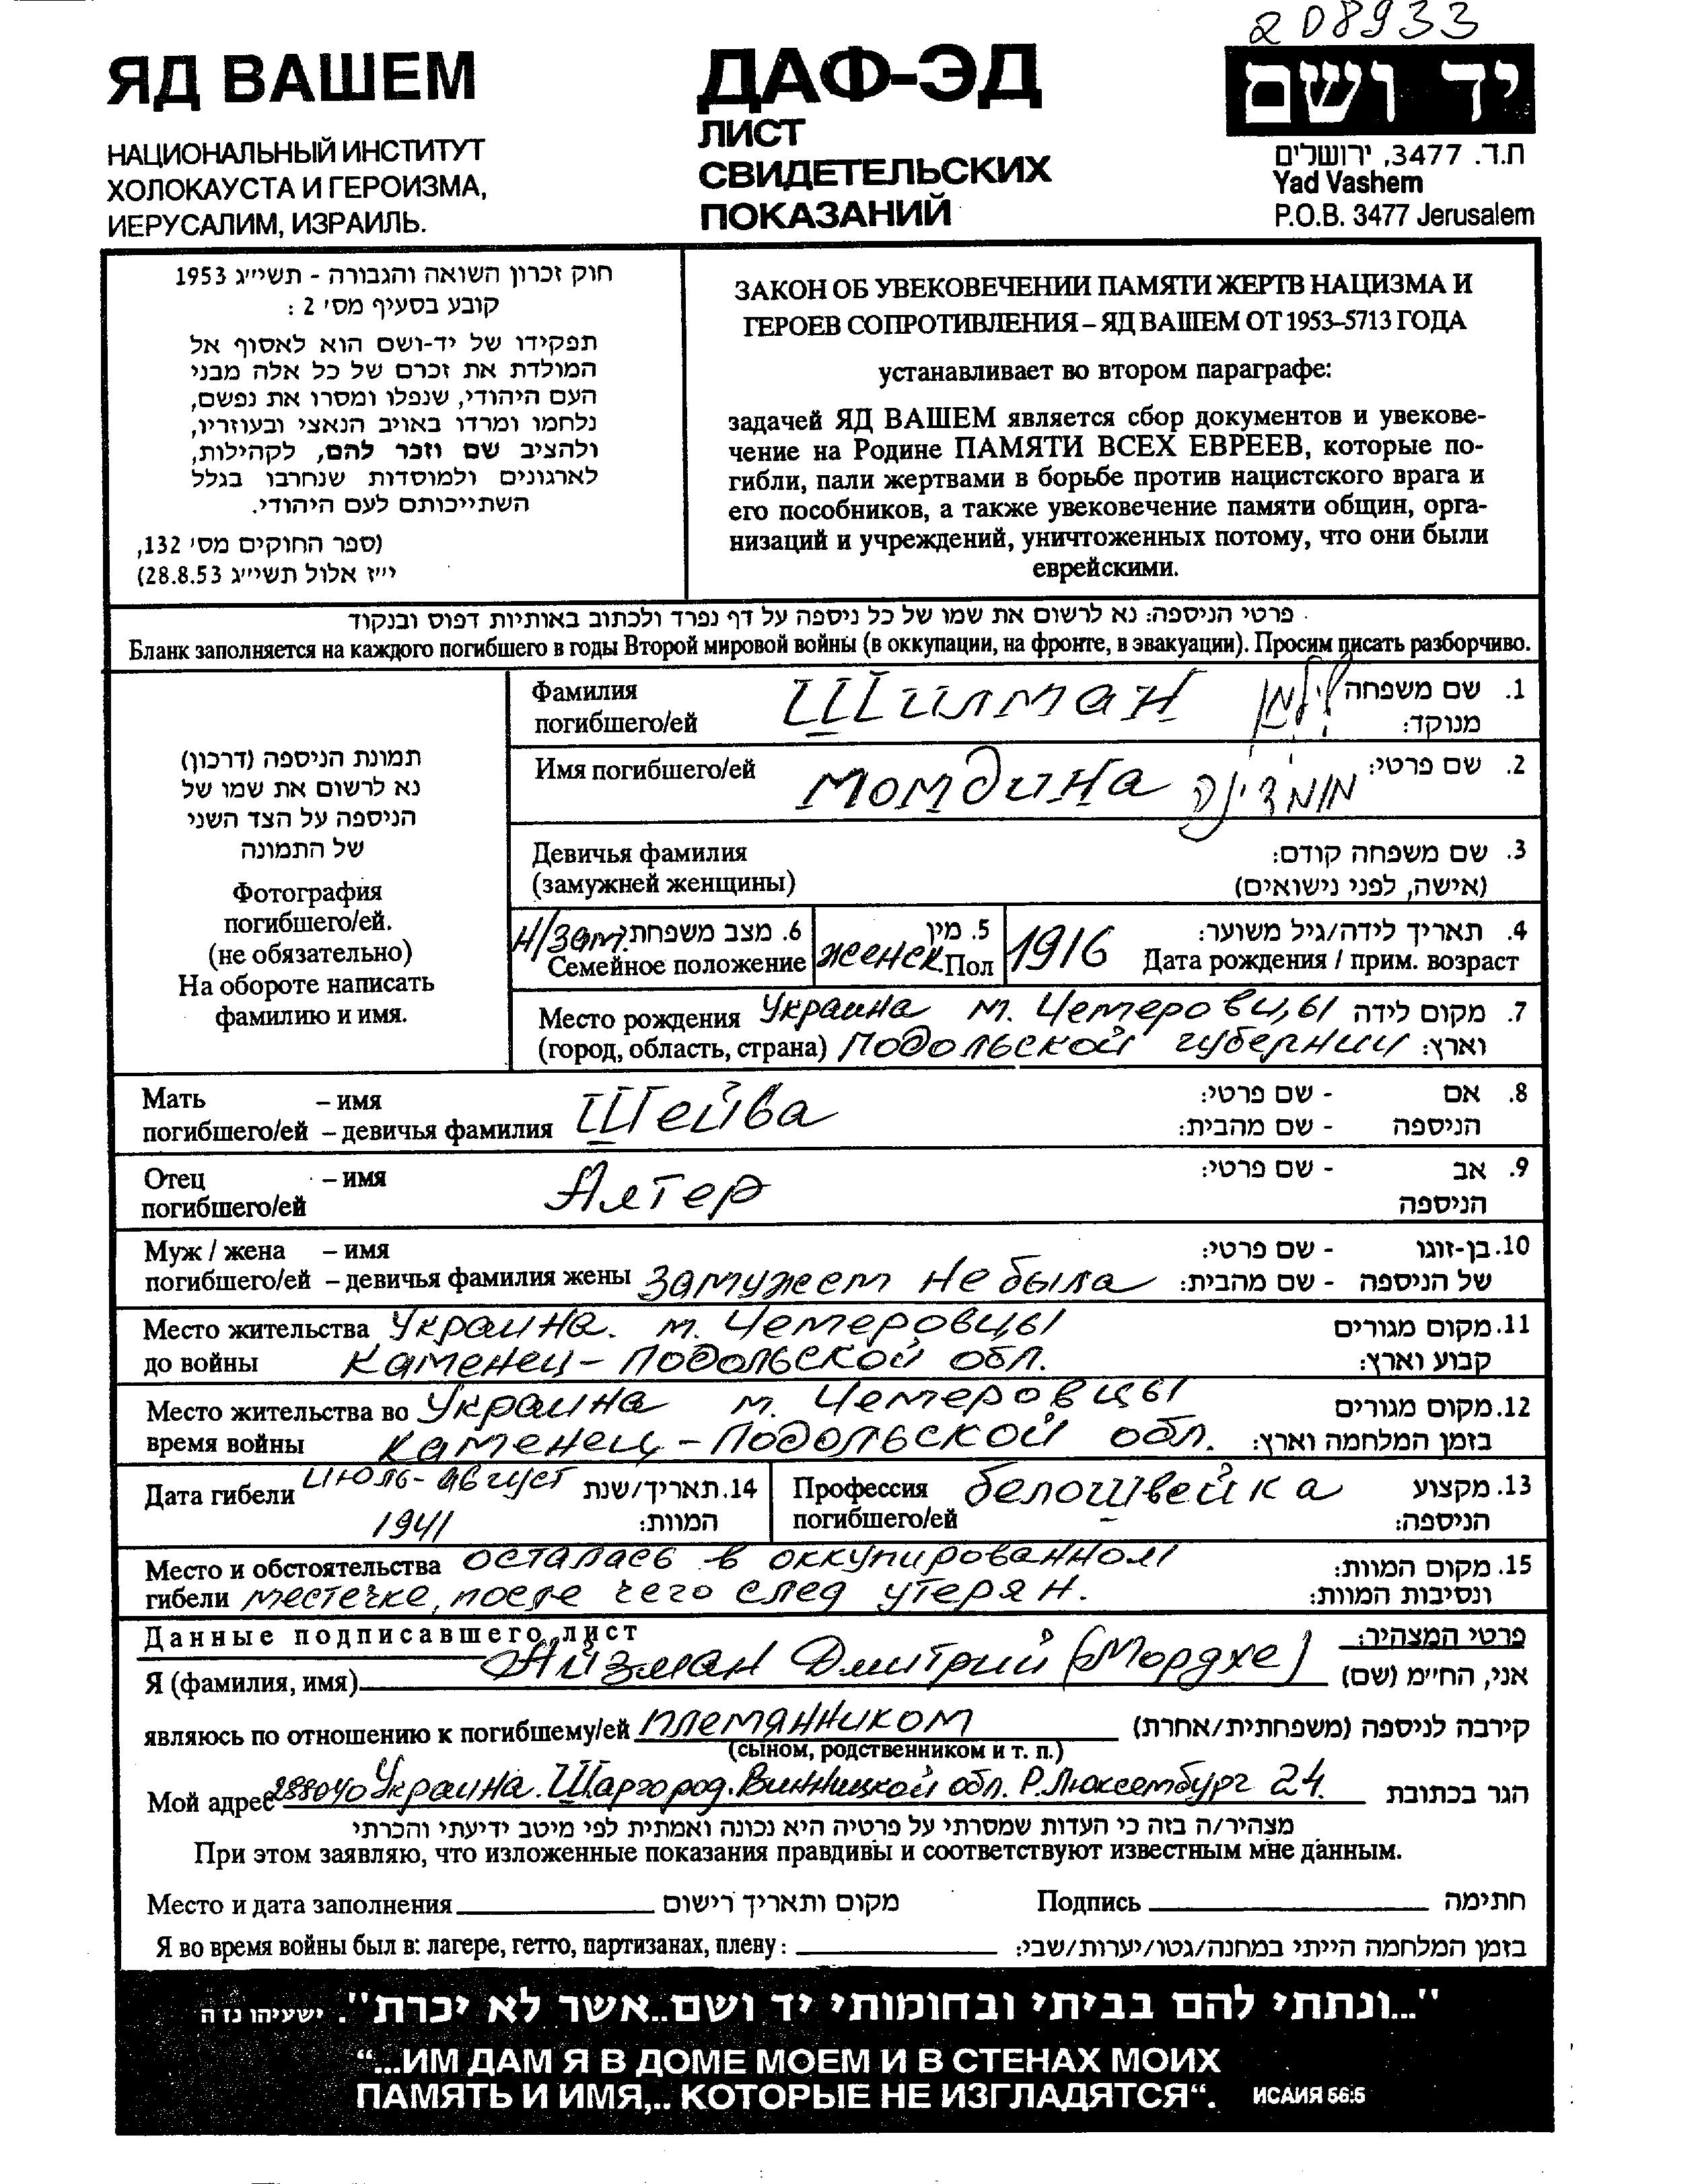 208933
ЯД ВАШЕМ
НАЦИОНАЛЬНЫЙ ИНСТИТУТ
ХОЛОКАУСТА И ГЕРОИЗМА,
ИЕРУСАЛИМ, ИЗРАИЛЬ.
ДАФ-ЭД
ЛИСТ
СВИДЕТЕЛЬСКИХ
ПОКАЗАНИЙ
יד ושם
ת.ד. 3477, ירושלים
Yad Vashem
P.O.B. 3477 Jerusalem
חוק זכרון השואה והגבורה - תשי״ג 1953
קובע בסעיף מס׳ 2 :
תפקידו של יד-ושם הוא לאסוף אל
המולדת את זכרם של כל אלה מבני
העם היהודי, שנפלו ומסרו את נפשם,
נלחמו ומרדו באויב הנאצי ובעוזריו,
ולהציב שם וזכר להם, לקהילות,
לארגונים ולמוסדות שנחרבו בגלל
השתייכותם לעם היהודי.
(ספר החוקים מס׳ 132,
י״ז אלול תשי״ג 28.8.53)
ЗАКОН ОБ УВЕКОВЕЧЕНИИ ПАМЯТИ ЖЕРТВ НАЦИЗМА И
ГЕРОЕВ СОПРОТИВЛЕНИЯ – ЯД ВАШЕМ ОТ 1953–5713 ГОДА
устанавливает во втором параграфе:
задачей ЯД ВАШЕМ является сбор документов и увекове-
чение на Родине ПАМЯТИ ВСЕХ ЕВРЕЕВ, которые по-
гибли, пали жертвами в борьбе против нацистского врага и
его пособников, а также увековечение памяти общин, орга-
низаций и учреждений, уничтоженных потому, что они были
еврейскими.
פרטי הניספה: נא לרשום את שמו של כל ניספה על דף נפרד ולכתוב באותיות דפוס ובנקוד
Бланк заполняется на каждого погибшего в годы Второй мировой войны (в оккупации, на фронте, в эвакуации). Просим писать разборчиво.
תמונת הניספה (דרכון)
נא לרשום את שמו של
הניספה על הצד השני
של התמונה
Фотография
погибшего/ей.
(не обязательно)
На обороте написать
фамилию и имя.
Фамилия Шилман שילמן 1. שם משפחה
погибшего/ей מנוקד:
Имя погибшего/ей Момдина מומדינה 2. שם פרטי:
Девичья фамилия 3. שם משפחה קודם:
(замужней женщины) (אישה, לפני נישואים)
Н/зам. 6. מצב משפחתי: 5. מין 4. תאריך לידה/גיל משוער:
Семейное положение женск Пол 1916 Дата рождения / прим. возраст
Место рождения Украина м. Чемеровцы 7. מקום לידה
(город, область, страна) Подольской губернии וארץ:
Мать – имя Шейва 8. אם - שם פרטי:
погибшего/ей – девичья фамилия הניספה - שם מהבית:
Отец – имя Алтер 9. אב - שם פרטי:
погибшего/ей הניספה
Муж / жена – имя 10. בן-זוגו - שם פרטי:
погибшего/ей – девичья фамилия жены Замужем не была של הניספה - שם מהבית:
Место жительства Украина. м. Чемеровцы 11. מקום מגורים
до войны Каменец-Подольской обл. קבוע וארץ:
Место жительства во Украина м. Чемеровцы 12. מקום מגורים
время войны Каменец-Подольской обл. בזמן המלחמה וארץ:
Дата гибели Июль-Август 14. תאריך/שנת
1941 המוות:
Профессия белошвейка 13. מקצוע
погибшего/ей הניספה:
Место и обстоятельства осталась в оккупированном 15. מקום המוות:
гибели местечке, после чего след утерян. ונסיבות המוות:
Данные подписавшего лист פרטי המצהיר:
Я (фамилия, имя) Айзман Дмитрий (Мордхе) אני, הח״מ (שם)
являюсь по отношению к погибшему/ей племянником קירבה לניספה (משפחתית/אחרת)
(сыном, родственником и т. п.)
Мой адрес 288040 Украина. Шаргород. Винницкой обл. Р. Люксембург 24. הגר בכתובת
מצהיר/ה בזה כי העדות שמסרתי על פרטיה היא נכונה ואמתית לפי מיטב ידיעתי והכרתי
При этом заявляю, что изложенные показания правдивы и соответствуют известным мне данным.
Место и дата заполнения מקום ותאריך רישום Подпись חתימה
Я во время войны был в: лагере, гетто, партизанах, плену: בזמן המלחמה הייתי במחנה/גטו/יערות/שבי:
"...ונתתי להם בביתי ובחומותי יד ושם..אשר לא יכרת". ישעיהו נז ה
“...ИМ ДАМ Я В ДОМЕ МОЕМ И В СТЕНАХ МОИХ
ПАМЯТЬ И ИМЯ,.. КОТОРЫЕ НЕ ИЗГЛАДЯТСЯ“. ИСАИЯ 56:5